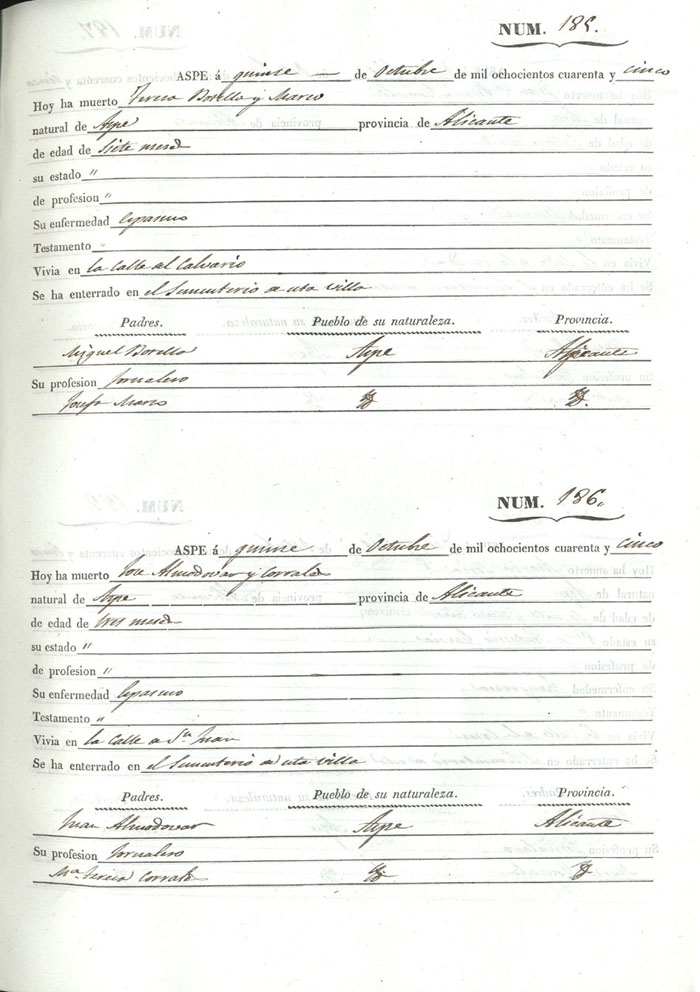 NUM. 185.
ASPE á quinse — de Octubre de mil ochocientos cuarenta y cinco
Hoy ha muerto Teresa Botella y Marco
natural de Aspe provincia de Alicante
de edad de siete meses
su estado "
de profesion "
Su enfermedad Espasmo
Testamento -
Vivia en la Calle del Calvario
Se ha enterrado en el Sementerio de esta villa
Padres. Pueblo de su naturaleza. Provincia.
Miguel Botella Aspe Alicante
Su profesion Jornalero
Josefa Marco
NUM. 186.
ASPE á quinse de Octubre de mil ochocientos cuarenta y cinco
Hoy ha muerto Jose Almodovar y Corrales
natural de Aspe provincia de Alicante
de edad de tres meses
su estado "
de profesion "
Su enfermedad Espasmo
Testamento "
Vivia en la Calle de Sn Juan
Se ha enterrado en el Sementerio de esta villa
Padres. Pueblo de su naturaleza. Provincia.
Juan Almodovar Aspe Alicante
Su profesion Jornalero
Ma. Teresa Corrales